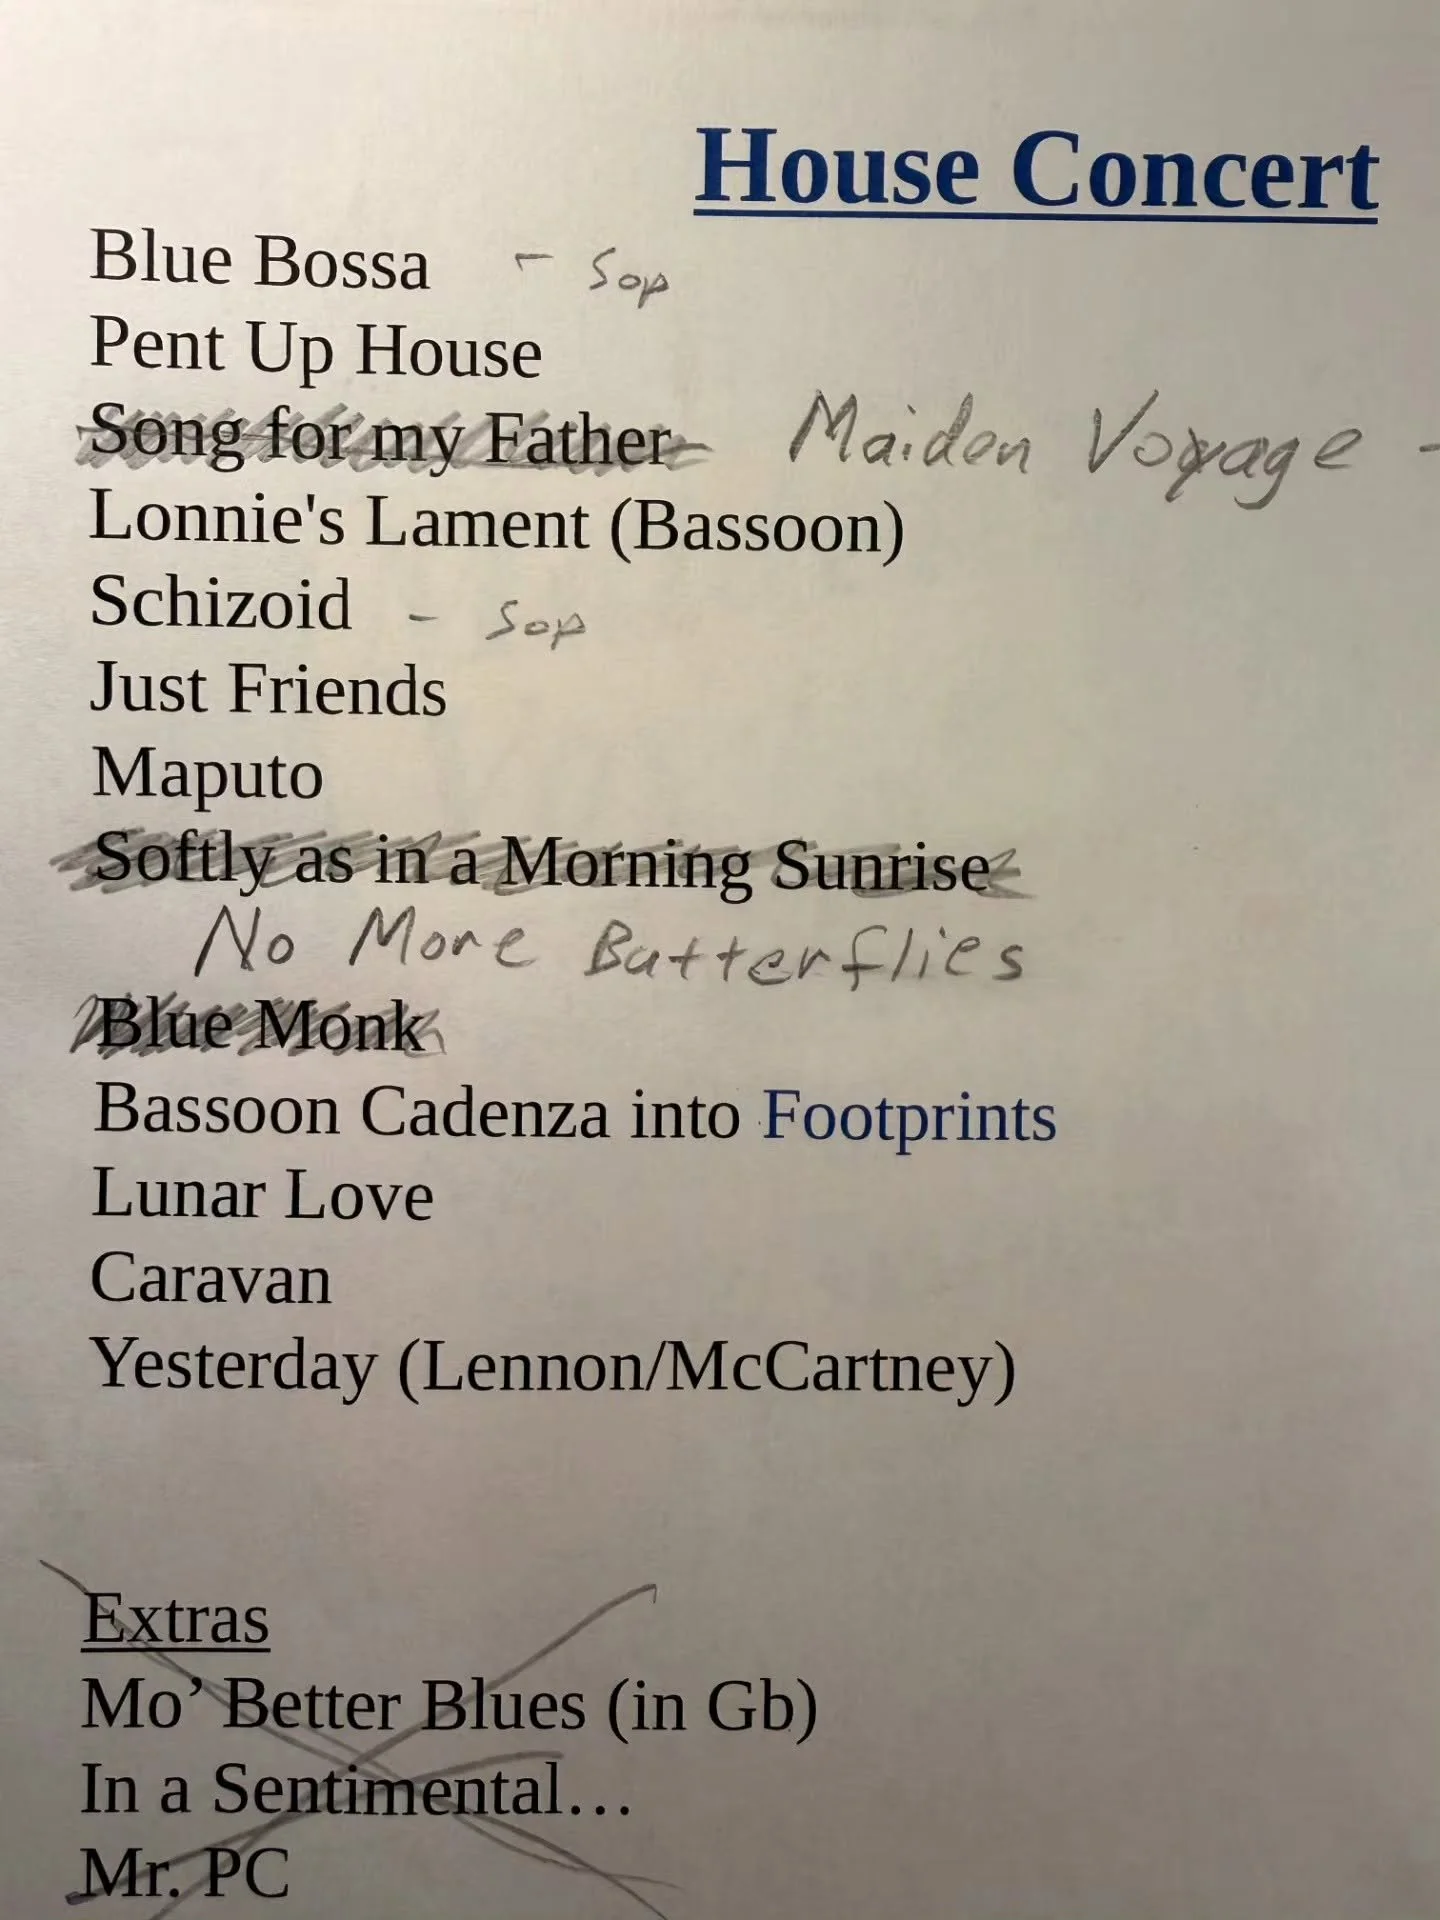 House Concert
Blue Bossa - Sop
Pent Up House
Song for my Father Maiden Voyage -
Lonnie's Lament (Bassoon)
Schizoid - Sop
Just Friends
Maputo
Softly as in a Morning Sunrise
No More Butterflies
Blue Monk
Bassoon Cadenza into Footprints
Lunar Love
Caravan
Yesterday (Lennon/McCartney)
Extras
Mo’ Better Blues (in Gb)
In a Sentimental…
Mr. PC